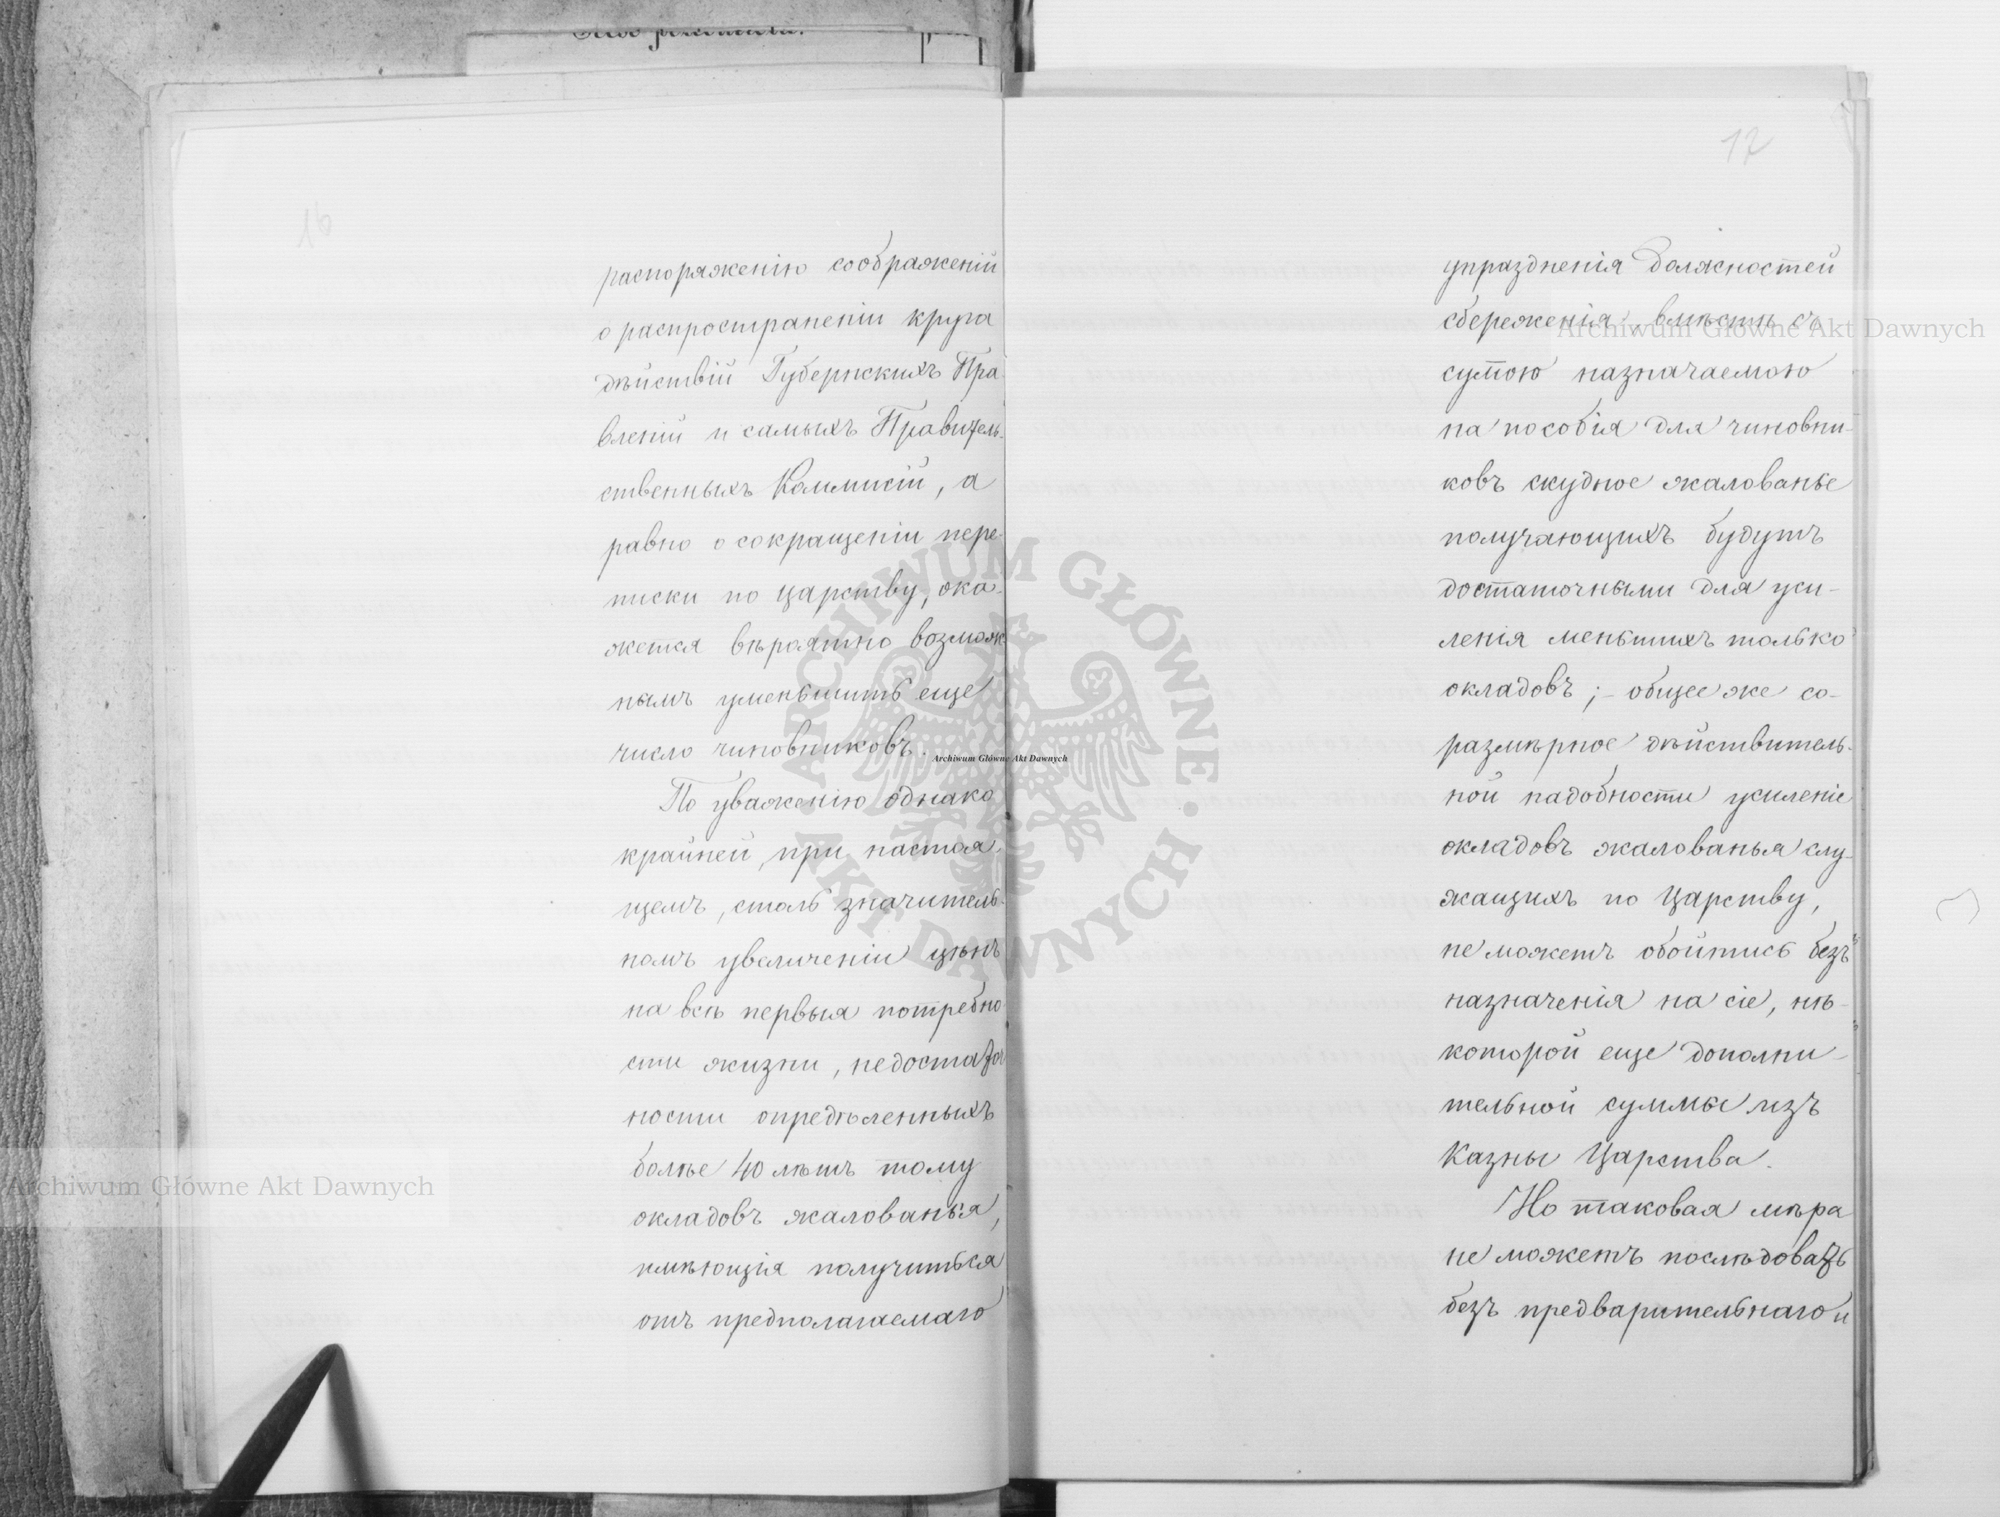 16
распоряженію соображеній
о распространеніи круга
дѣйствій Губернскихъ Пра-
вленій и самыхъ Правитель-
ственныхъ Коммисій, а
равно о сокращеніи пере-
писки по царству, ока-
жется вѣроятно возмож-
нымъ уменьшить еще
число чиновниковъ.
По уваженію однако
крайней, при настоя-
щемъ, столь значитель-
номъ увеличеніи цѣнъ
на всѣ первыя потребно-
сти жизни, недостаточ-
ности опредѣленныхъ
болѣе 40 лѣтъ тому
окладовъ жалованья,
имѣющія получиться
отъ предполагаемаго
17
упраздненія должностей
сбереженія, вмѣстѣ съ
сумою назначаемою
на пособія для чиновни-
ковъ скудное жалованье
получающихъ будутъ
достаточными для уси-
ленія меньшихъ только
окладовъ; - общее же со-
размѣрное дѣйствитель-
ной надобности усиленіе
окладовъ жалованья слу-
жащихъ по Царству,
не можетъ обойтись безъ
назначенія на сіе, нѣ-
которой еще дополни-
тельной суммы изъ
Казны Царства.
Но таковая мѣра
не можетъ послѣдовать
безъ предварительнаго и
Archiwum Główne Akt Dawnych
Archiwum Główne Akt Dawnych
Archiwum Główne Akt Dawnych
ARCHIWUM GŁÓWNE · AKT DAWNYCH ·